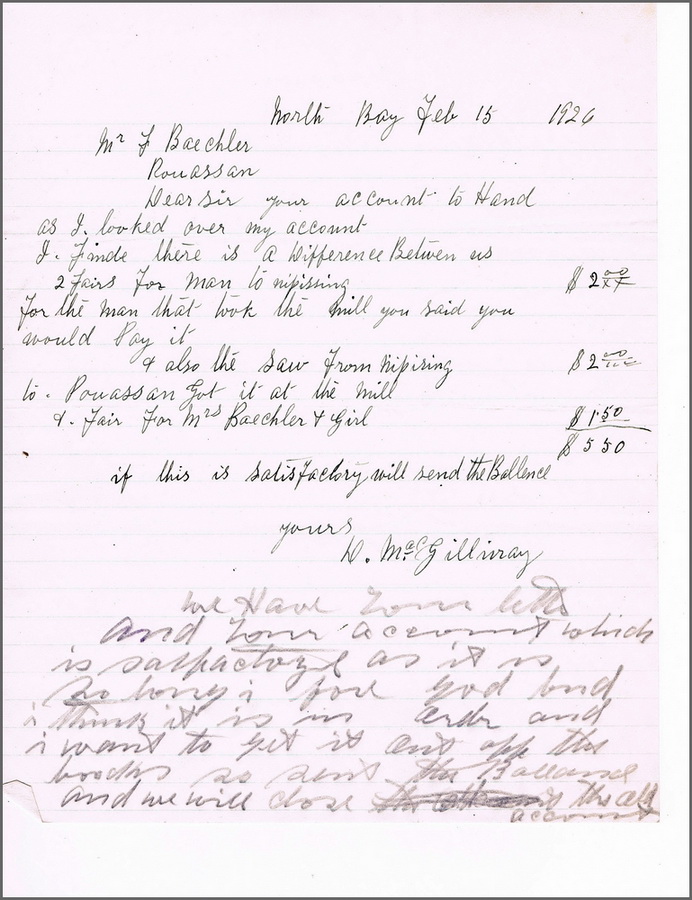 North Bay Feb 15 1926
Mr F Baechler
Pouassan
Dear sir your account to Hand
as I. looked over my account
I. Finde there is a Difference Betwen us
2 Fairs For man to nipissing $ 2 00
For the man that took the mill you said you
would Pay it
& also the saw From nipising $ 2 00
to. Pouassan Got it at the mill
&. Fair For Mrs Baechler & Girl $ 1.50
$ 5 50
if this is satisFactory will send the Ballence
yours
D. MacGillivray
we Have your
and your account which
is as it is
so long i god
i think it is in and
i want to get it out off the
books so sent the Ballance
and we will close the
account